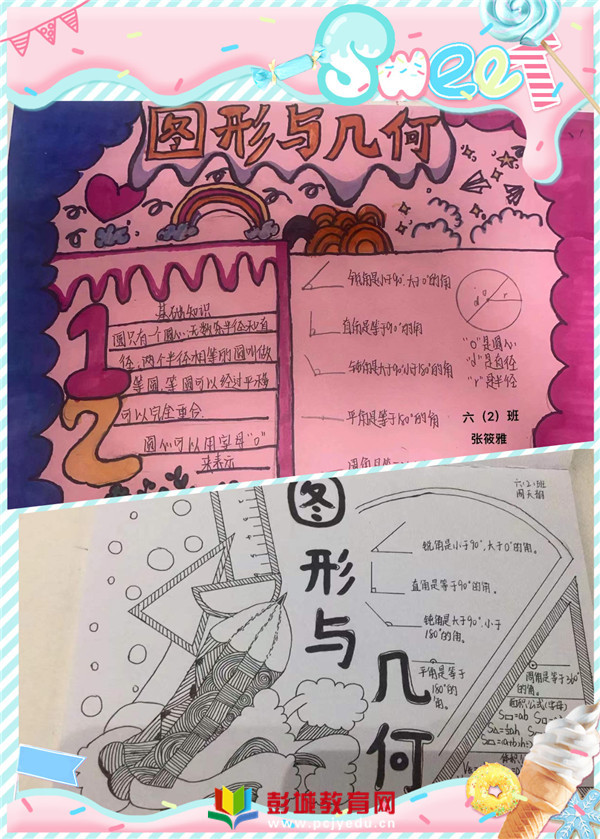 Sweet
图形与几何
1
2
基础知识
圆只有一个圆心,无数条半径和直
径,两个半径相等的圆叫做
等圆,等圆可以经过平移
可以完全重合.
圆心可以用字母"O"
来表示
锐角是小于90°大于0°的角
直角是等于90°的角
钝角是大于90°小于180°的角
平角是等于180°的角
d
o
r
"O"是圆心
"d"是直径
"r"是半径
六(2)班
张筱雅
图形与几何
六·2·班
锐角是小于90°,大于0°的角。
直角是等于90°的角。
钝角是大于90°,小于
180°的角。
平角是等于
180°的
角。
周角是等于360°
的角。
面积公式(字母)
彭城教育网
www.pcjyedu.cn